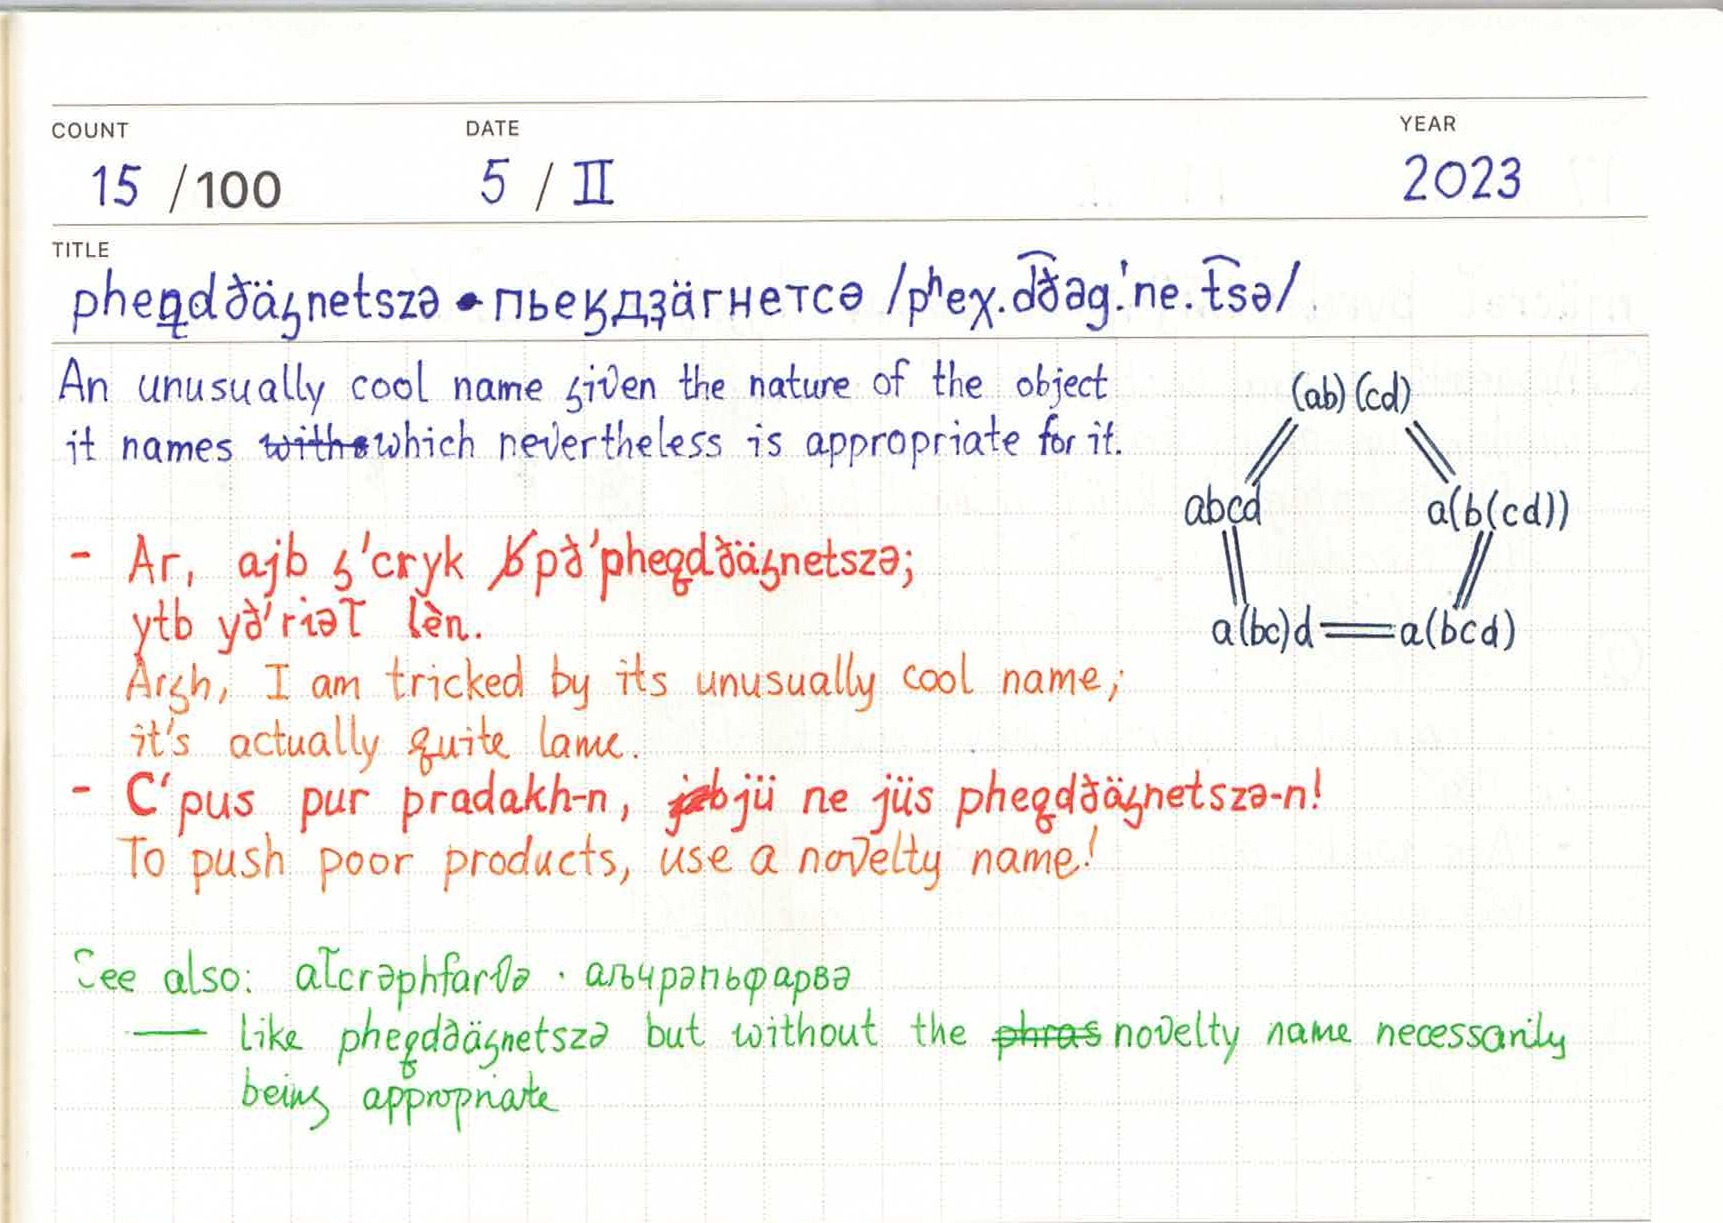 COUNT
15 /100
DATE
5 / II
YEAR
2023
TITLE
pheqdðäȝnetszə • пьеӄдҙäгнетсә /pʰeχ.d͡ðəg.'ne.t͡sə/
An unusually cool name given the nature of the object
it names which nevertheless is appropriate for it.
(ab)(cd)
abcd
a(b(cd))
a(bc)d
a(bcd)
- Ar, ajb ȝ'cryk pð'pheqdðäȝnetszə;
ytb yð'riəł lèn.
Argh, I am tricked by its unusually cool name;
it's actually quite lame.
- C'pus pur pradakh-n, jü ne jüs pheqdðäȝnetszə-n!
To push poor products, use a novelty name!
See also: ałcrəphfarvə · аљчрәпьфарвә
— like pheqdðäȝnetszə but without the novelty name necessarily
being appropriate